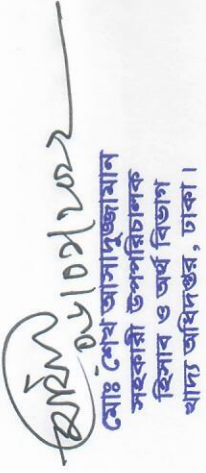 ০৮/০১/২০২২
মোঃ শেখ আসাদুজ্জামান
সহকারী উপপরিচালক
হিসাব ও অর্থ বিভাগ
খাদ্য অধিদপ্তর, ঢাকা।